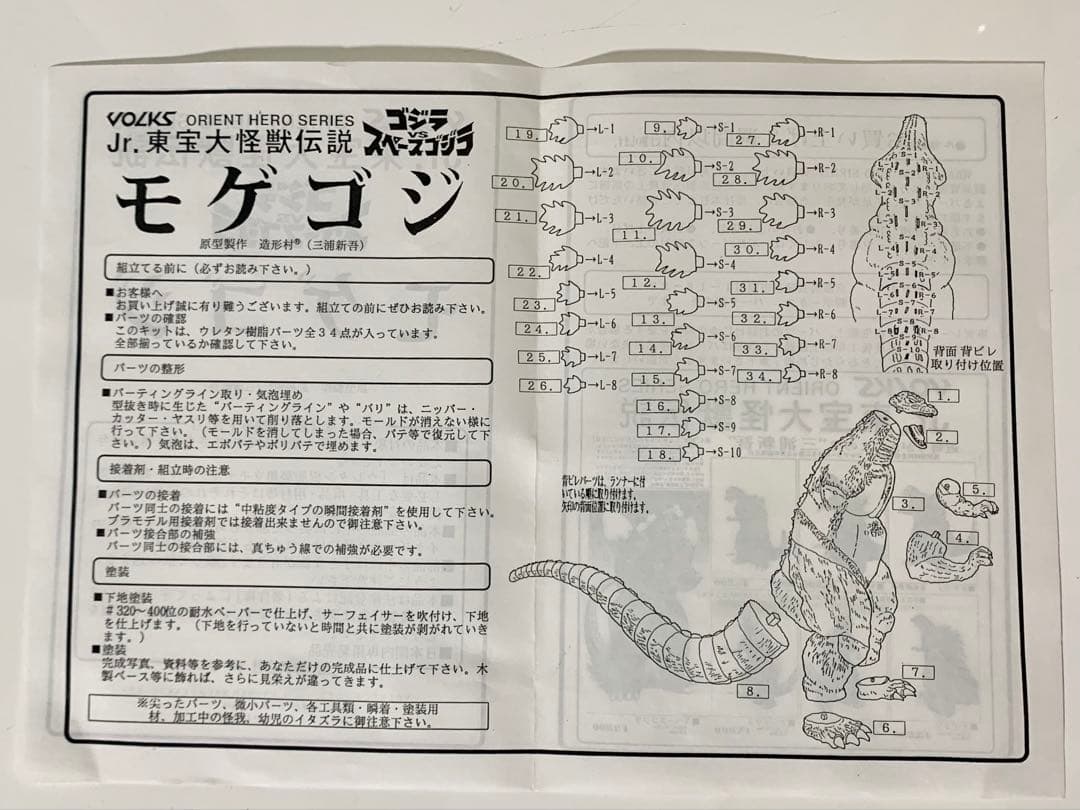 VOLKS ORIENT HERO SERIES
Jr.東宝大怪獣伝説
ゴジラ
VS
スペースゴジラ
モゲゴジ
原型製作 造形村®(三浦新吾)
組立てる前に(必ずお読み下さい。)
■お客様へ
お買い上げ誠に有り難うございます。組立ての前にぜひお読み下さい。
■パーツの確認
このキットは、ウレタン樹脂パーツ全34点が入っています。
全部揃っているか確認して下さい。
パーツの整形
■パーティングライン取り・気泡埋め
型抜き時に生じた“パーティングライン”や“バリ”は、ニッパー・
カッター・ヤスリ等を用いて削り落とします。モールドが消えない様に
行って下さい。(モールドを消してしまった場合、パテ等で復元して下
さい。)気泡は、エポパテやポリパテで埋めます。
接着剤・組立時の注意
■パーツの接着
パーツ同士の接着には“中粘度タイプの瞬間接着剤”を使用して下さい。
プラモデル用接着剤では接着出来ませんので御注意下さい。
■パーツ接合部の補強
パーツ同士の接合部には、真ちゅう線での補強が必要です。
塗装
■下地塗装
#320~400位の耐水ペーパーで仕上げ、サーフェイサーを吹付け、下地
を仕上げます。(下地を行っていないと時間と共に塗装が剥がれていき
ます。)
■塗装
完成写真、資料等を参考に、あなただけの完成品に仕上げて下さい。木
製ベース等に飾れば、さらに見栄えが違ってきます。
※尖ったパーツ、微小パーツ、各工具類・瞬着・塗装用
材、加工中の怪我、幼児のイタズラに御注意下さい。
19. →L-1
20. →L-2
21. →L-3
22. →L-4
23. →L-5
24. →L-6
25. →L-7
26. →L-8
9. →S-1
10. →S-2
11. →S-3
12. →S-4
13. →S-5
14. →S-6
15. →S-7
16. →S-8
17. →S-9
18. →S-10
27. →R-1
28. →R-2
29. →R-3
30. →R-4
31. →R-5
32. →R-6
33. →R-7
34. →R-8
背ビレパーツは、ランナーに付
いている順に取り付けます。
矢印の背面位置に取り付けます。
背面 背ビレ
取り付け位置
1.
2.
3.
5.
4.
8.
7.
6.